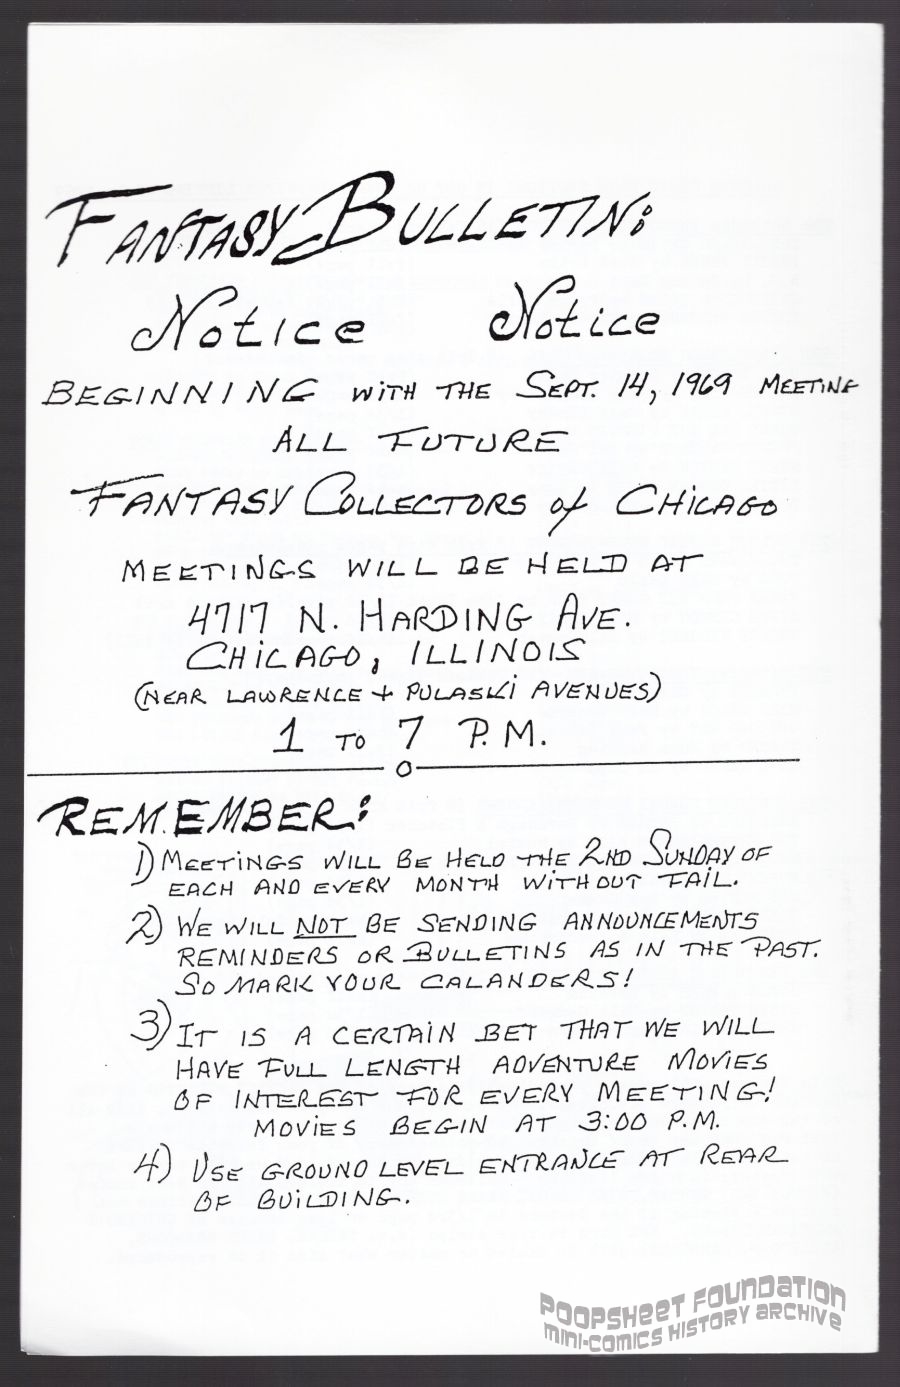 Fantasy Bulletin:
Notice Notice
BEGINNING WITH THE SEPT. 14, 1969 MEETING
ALL FUTURE
FANTASY COLLECTORS of CHICAGO
MEETINGS WILL BE HELD AT
4717 N. HARDING AVE.
CHICAGO, ILLINOIS
(NEAR LAWRENCE + PULASKI AVENUES)
1 TO 7 P.M.
REMEMBER:
1) MEETINGS WILL BE HELD THE 2ND SUNDAY OF
EACH AND EVERY MONTH WITHOUT FAIL.
2) WE WILL NOT BE SENDING ANNOUNCEMENTS
REMINDERS OR BULLETINS AS IN THE PAST.
SO MARK YOUR CALANDERS!
3) IT IS A CERTAIN BET THAT WE WILL
HAVE FULL LENGTH ADVENTURE MOVIES
OF INTEREST FOR EVERY MEETING!
MOVIES BEGIN AT 3:00 P.M.
4) USE GROUND LEVEL ENTRANCE AT REAR
OF BUILDING.
POOPSHEET FOUNDATION
MINI-COMICS HISTORY ARCHIVE